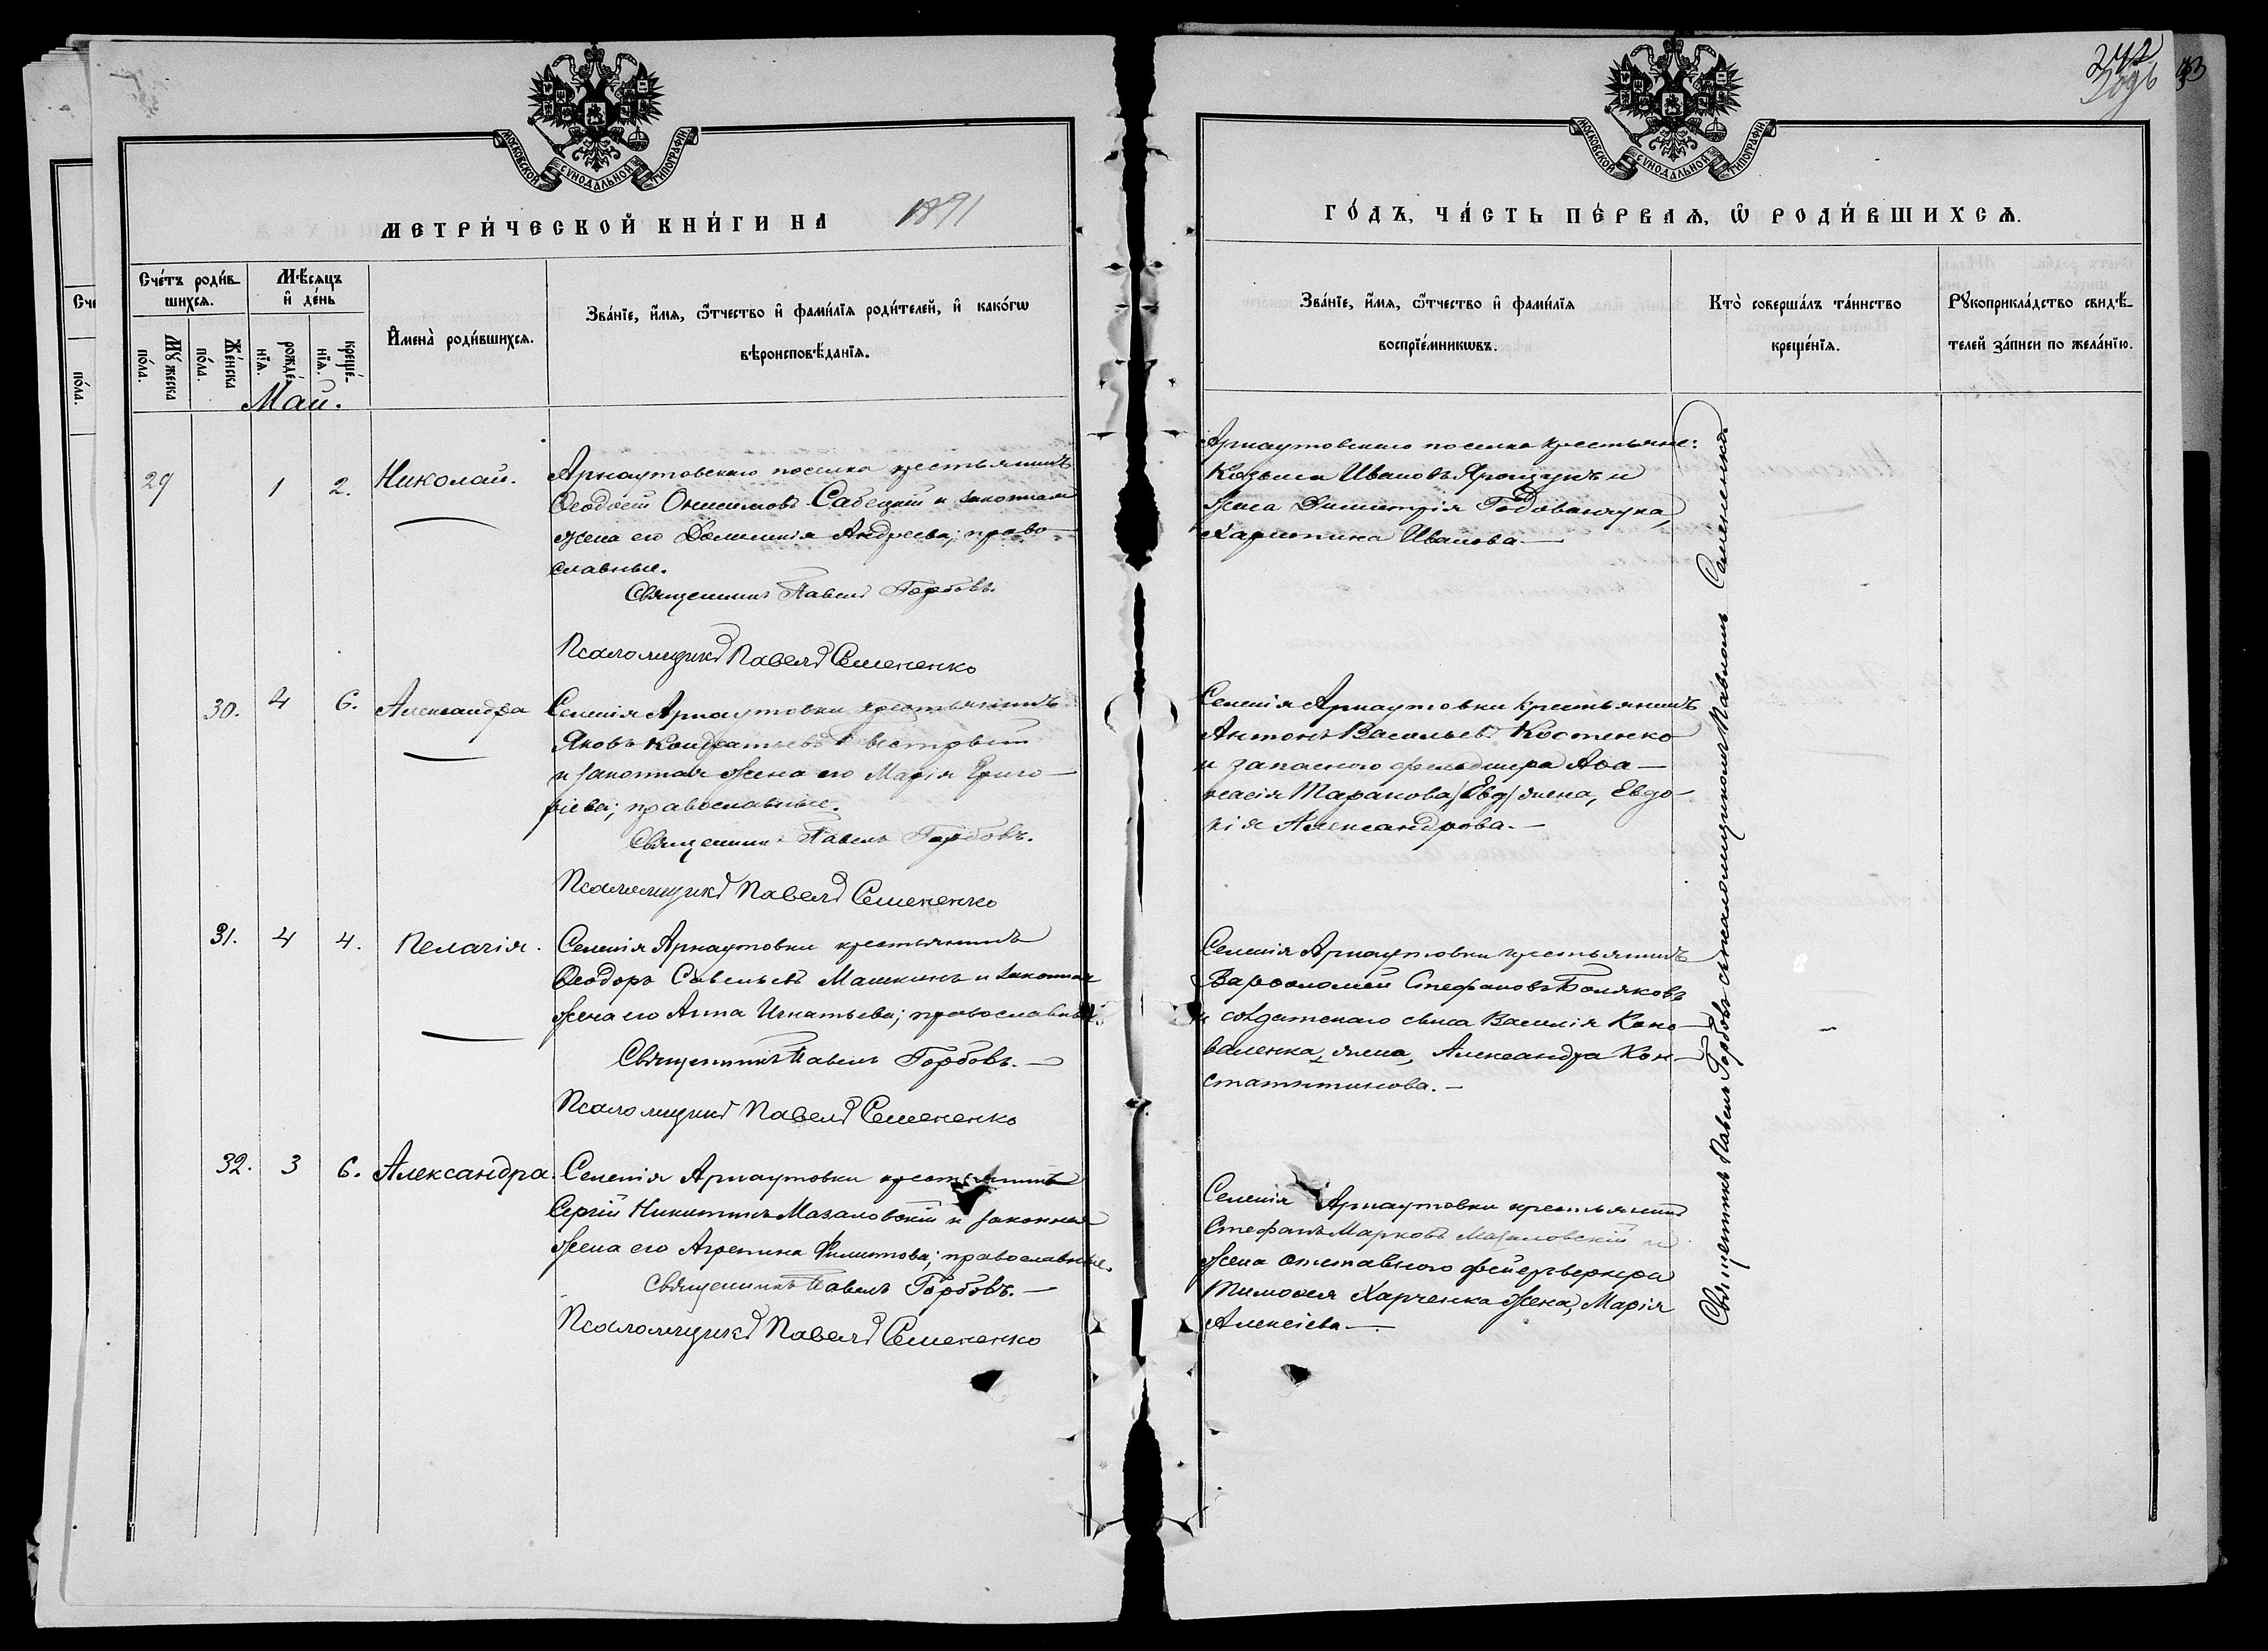 МОСКОВСКОЙ СУНОДАЛЬНОЙ ТИПОГРАФІИ.
МЕТРИ́ЧЕСКОЙ КНИ́ГИ НА 1891
Сче́тъ роди́в-
шихсѧ.
Мѣ́сѧцъ
и҆ де́нь
Мꙋжеска
по́ла.
Же́нска
по́ла.
рожде́-
нїѧ.
креще́-
нїѧ.
И҆мена̀ роди́вшихсѧ.
Зва́нїе, и҆́мѧ, ѻ҆́тчество и҆ фами́лїѧ роди́телей, и҆ како́гѡ
вѣроисповѣ́данїѧ.
Май.
29
1
2.
Николай.
Арнаутовскаго поселка крестьянинъ
Ѳеодосій Онисимовъ Сабецкій и законная
жена его Домникія Андреева; право-
славные.
Священникъ Павелъ Горбовъ.
Псаломщикъ Павелъ Семененко
30.
4
6.
Александра
Селенія Арнаутовки крестьянинъ
Яковъ Кондратьевъ
и законная жена его Марія Григо-
ріева; православные.
Священникъ Павелъ Горбовъ.
Псаломщикъ Павелъ Семененко
31.
4
4.
Пелагія.
Селенія Арнаутовки крестьянинъ
Ѳеодоръ Савельевъ Машкинъ и законная
жена его Анна Игнатьева; православные.
Священникъ Павелъ Горбовъ. —
Псаломщикъ Павелъ Семененко
32.
3
6.
Александра.
Селенія Арнаутовки крестьянинъ
Сергій Никитинъ Мазаловскій и законная
жена его Агрепина Филиппова; православные.
Священникъ Павелъ Горбовъ. —
Псаломщикъ Павелъ Семененко
242
МОСКОВСКОЙ СУНОДАЛЬНОЙ ТИПОГРАФІИ.
ГО́ДЪ, ЧА́СТЬ ПЕ́РВАѦ, Ѡ҆ РОДИ́ВШИХСѦ.
Зва́нїе, и҆́мѧ, ѻ҆́тчество и҆ фами́лїѧ
воспрїе́мникѡвъ.
Кто̀ соверша́лъ та́инство
креще́нїѧ.
Рꙋкоприкла́дство свидѣ́-
телей за́писи по жела́нїю.
Арнаутовскаго поселка крестьяне:
Козьма Ивановъ и
жена Димитрія Годованчука,
Харитина Иванова —
Селенія Арнаутовки крестьянинъ
Антонъ Васильевъ Костенко
и запаснаго фельдшера Аѳа-
насія Таранова /Евд/ жена, Евдо-
кія Александрова. —
Селенія Арнаутовки крестьянинъ
Варѳоломей Стефановъ Боляковъ
и солдатскаго сына Василія Коно-
валенка, жена, Александра Кон-
статнтинова. —
Селенія Арнаутовки крестьянинъ
Стефанъ Марковъ Мазаловскій и
жена отставного фейерверкера
Тимоѳея Харченка жена, Марія
Алексіева —
Священникъ Павелъ Горбовъ съ псаломщикомъ Павломъ Семененко